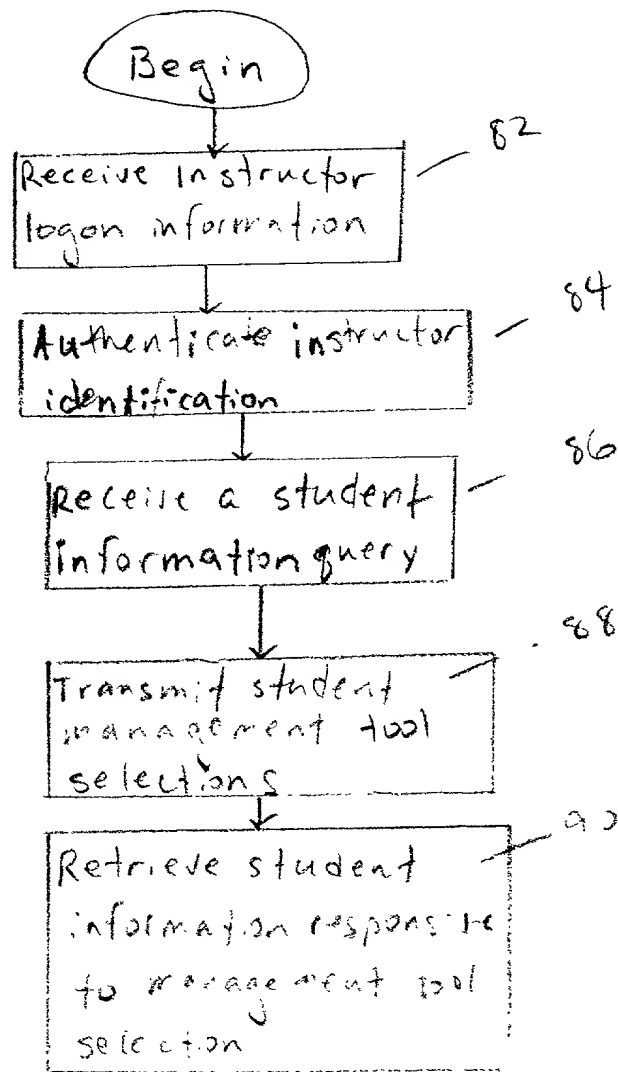 Begin
82
Receive Instructor
logon information
84
Authenticate instructor
identification
86
Receive a student
information query
88
Transmit student
management tool
selections
90
Retrieve student
information responsive
to management tool
selection